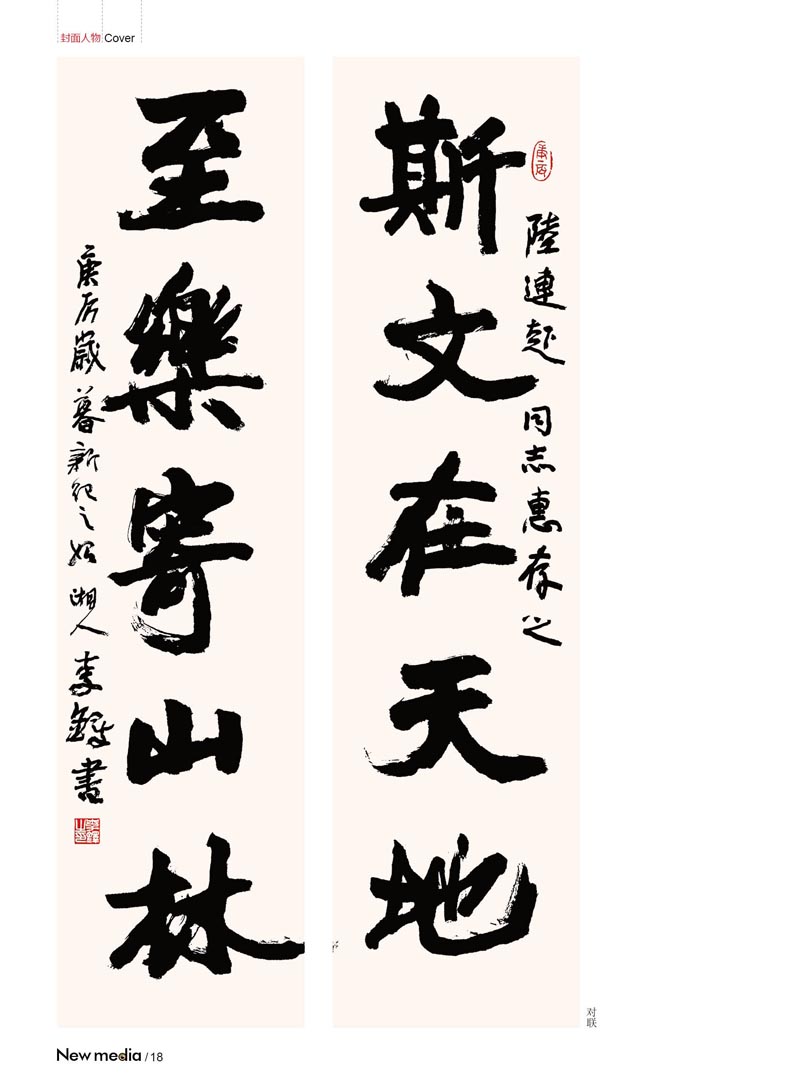 封面人物 Cover
庚辰
陸連起 同志惠存之
斯文在天地
至樂寄山林
庚辰歲暮新紀之始 湘人 李鐸書
对联
New media / 18